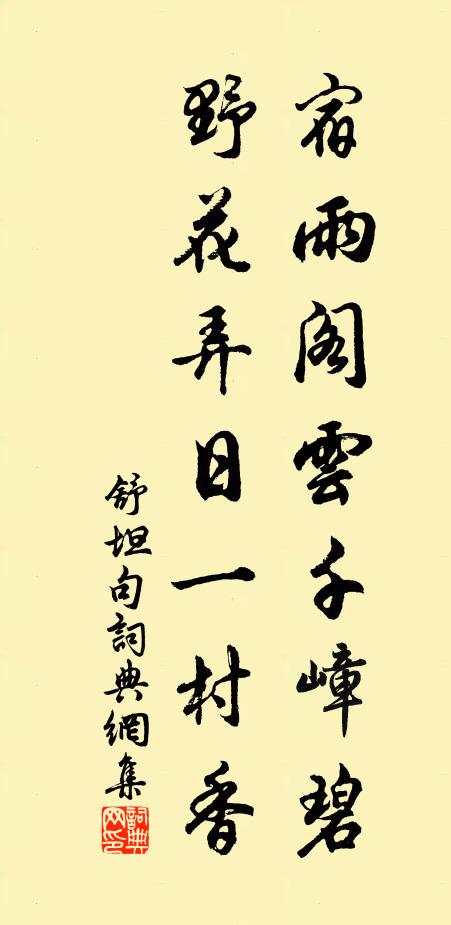 宿雨閣雲千嶂碧
野花弄日一村香
舒坦句詞典網集
詞典網印